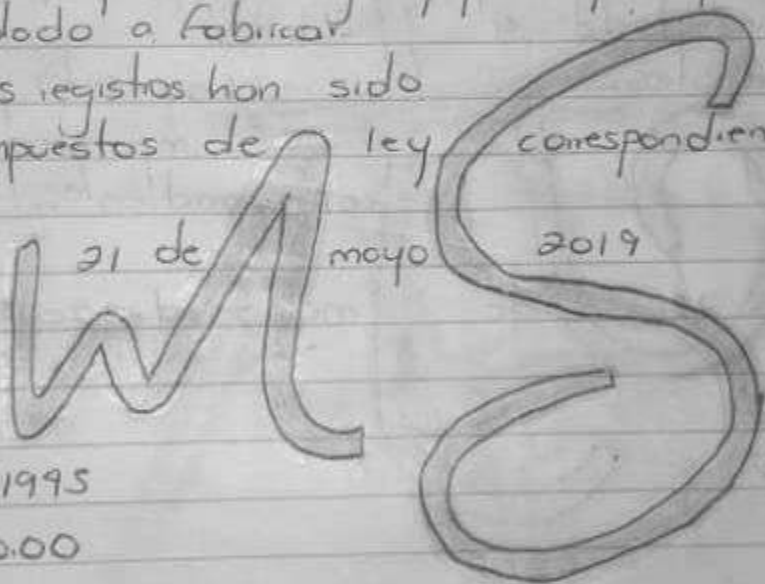 dado a fabricar
s registros han sido
mpuestos de ley correspondien
21 de mayo 2019
MS
1995
0.00